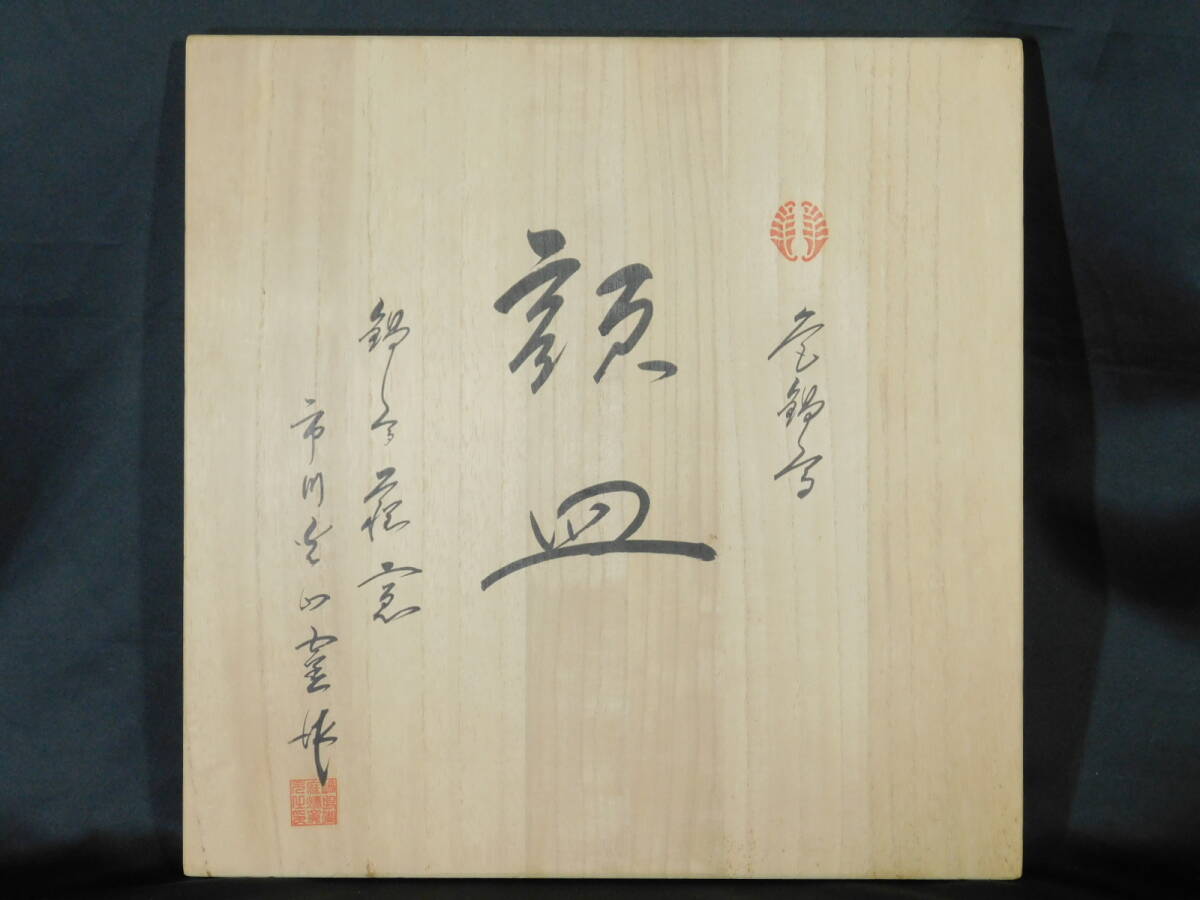 色鍋島
額皿
鍋島藩窯
市川光山窯作